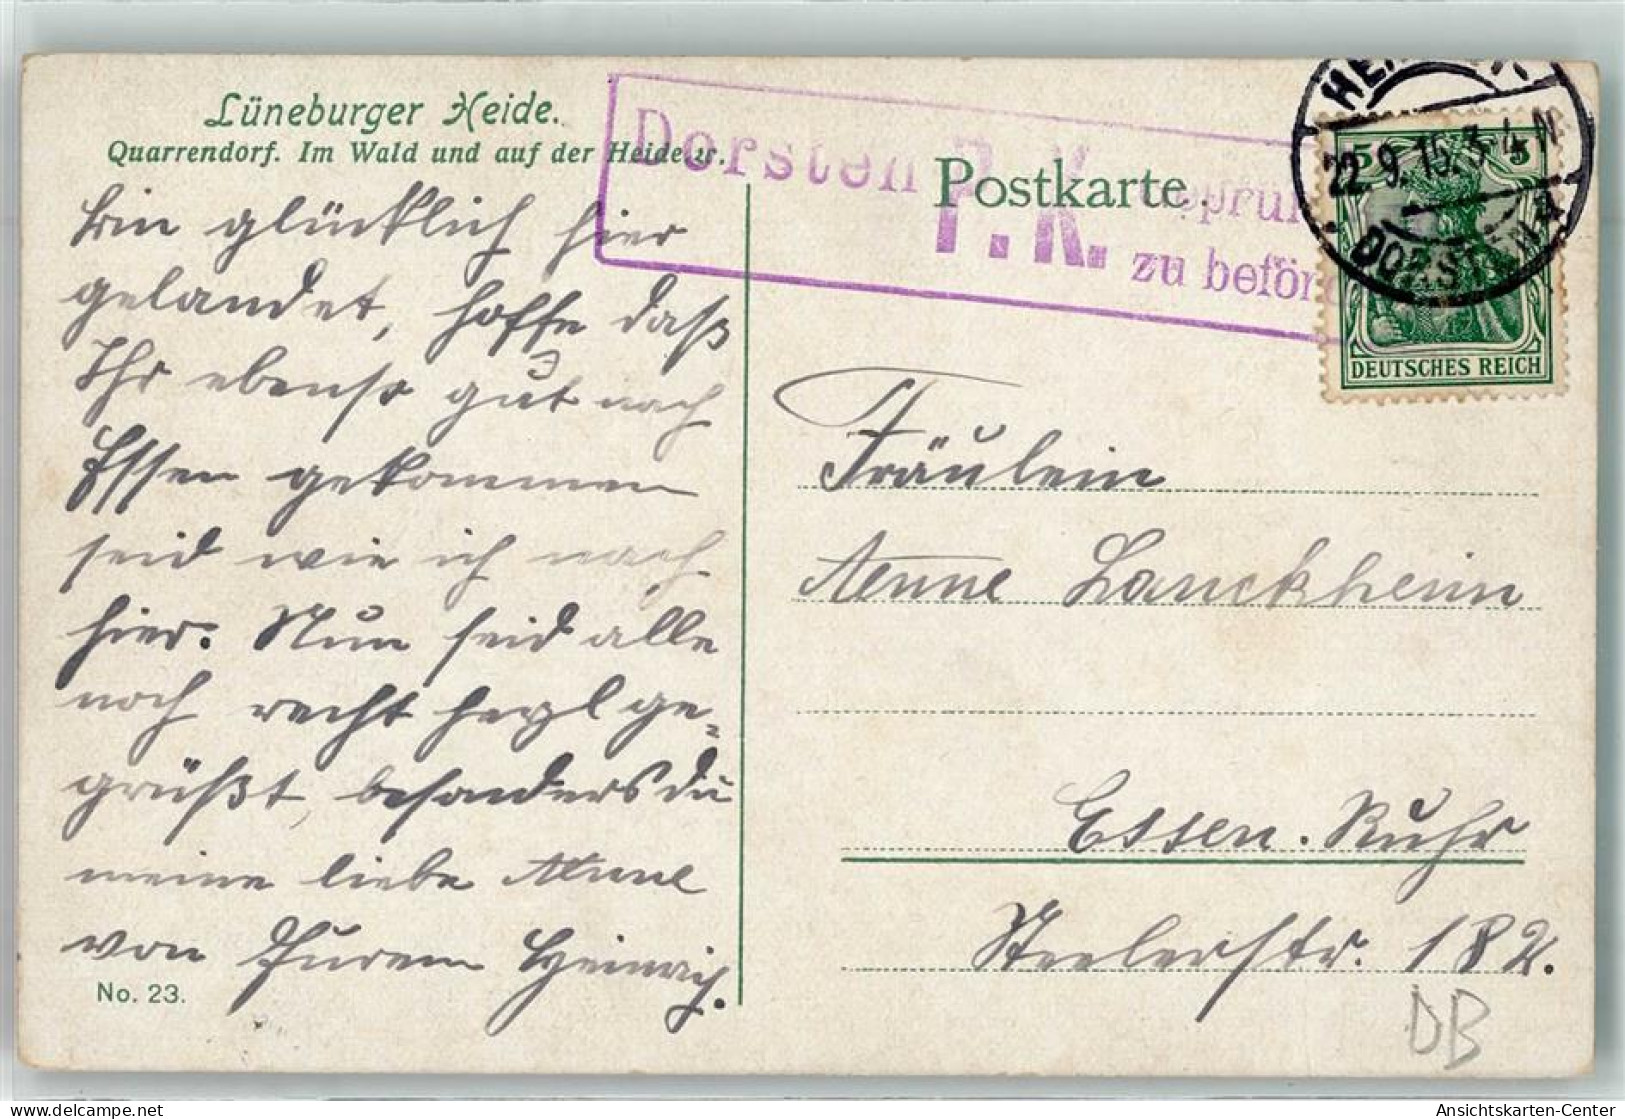 Lüneburger Heide.
Quarrendorf. Im Wald und auf der Heide etc.
Dorsten P.K. geprüf
P.K. zu beför
Postkarte.
22. 9. 15. 3-4 N
DORSTEN
5 5
DEUTSCHES REICH
Bin glücklich hier
gelandet, hoffe daß
Ihr ebenso gut nach
Essen gekommen
seid wie ich nach
hier. Nun seid alle
noch recht herzl ge-
grüßt, besonders Du
meine liebe Aenne
von Eurem Heinrich.
No. 23.
Fräulein
Aenne Lanckheim
Essen. Ruhr
Steelerstr. 182.
DB
Ansichtskarten-Center